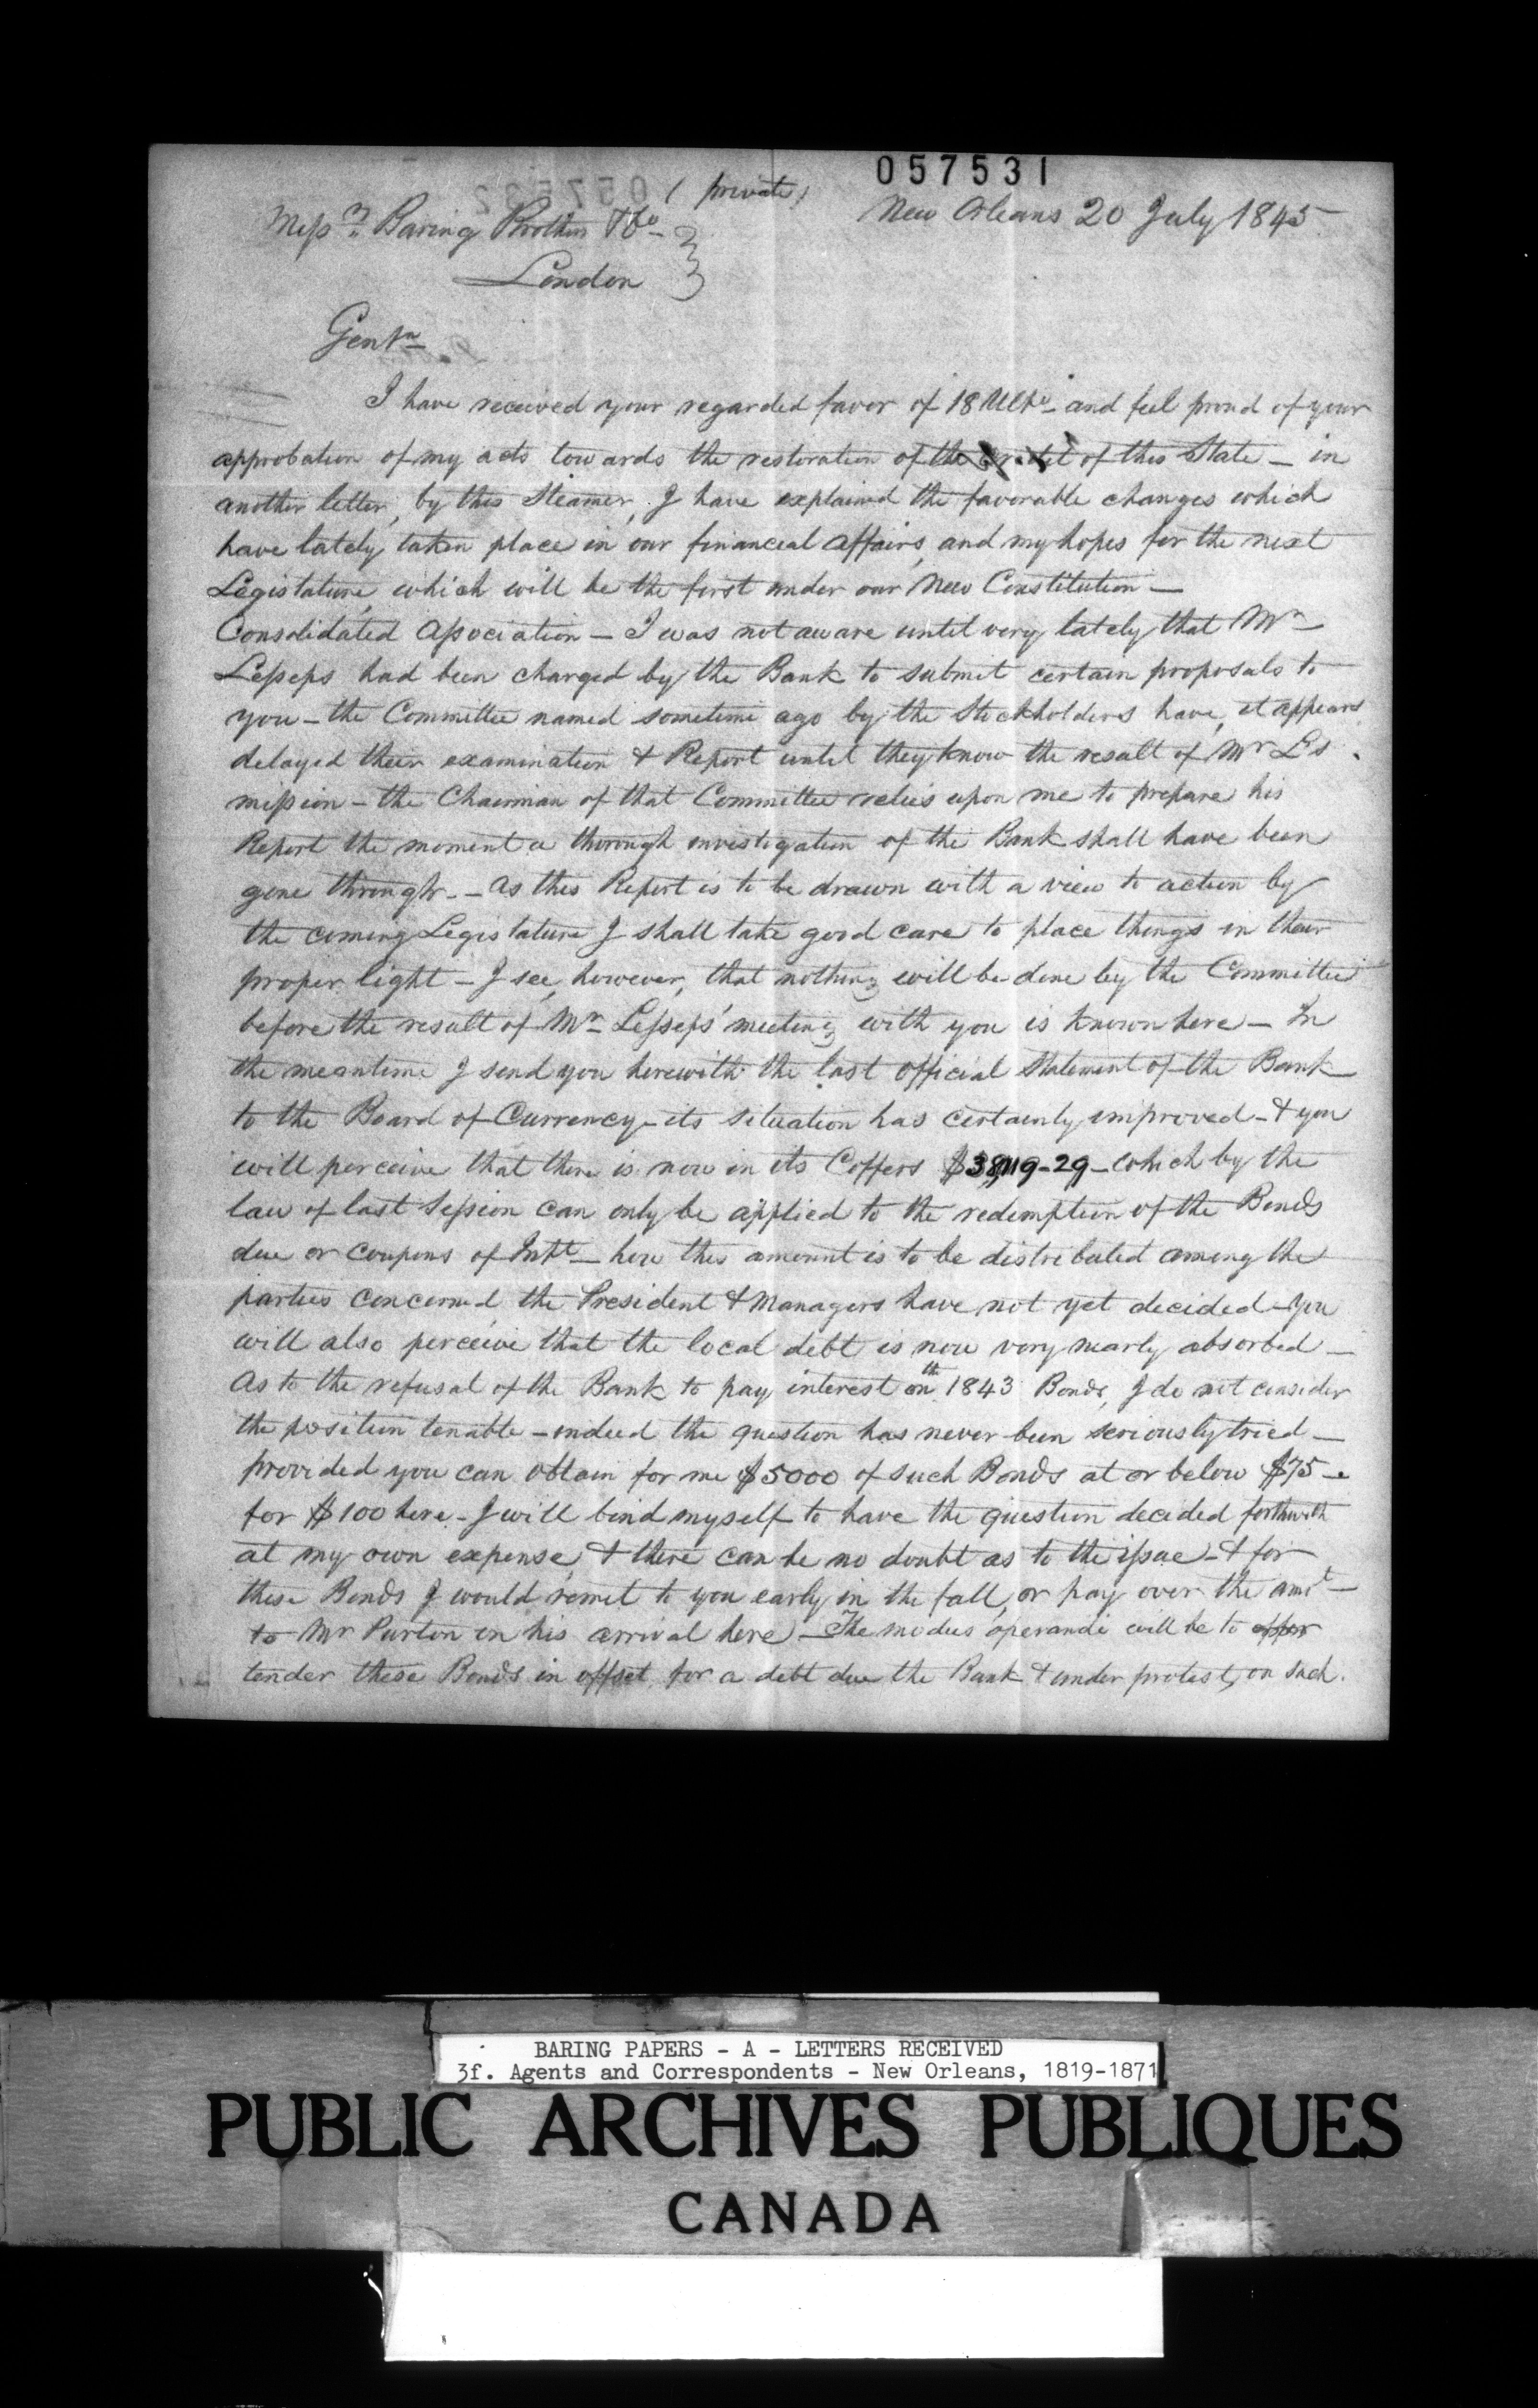 057531
(private)
New Orleans 20 July 1845
Messrs. Baring Brothers & Co
London
Gentn
I have received your regarded favor of 18 Ulto and feel proud of your
approbation of my acts towards the restoration of the credit of this State – in
another letter, by this Steamer, I have explained the favorable changes which
have lately taken place in our financial affairs, and my hopes for the next
Legislature, which will be the first under our New Constitution –
Consolidated Association – I was not aware until very lately that Mr
Lesseps had been charged by the Bank to submit certain proposals to
you – the Committee named sometime ago by the Stockholders have, it appears
delayed their examination & Report until they know the result of Mr L's
mission – the Chairman of that Committee relies upon me to prepare his
Report the moment a thorough investigation of the Bank shall have been
gone through. – As this Report is to be drawn with a view to action by
the coming Legislature I shall take good care to place things in their
proper light – I see, however, that nothing will be done by the Committee
before the result of Mr Lesseps' meeting with you is known here – In
the meantime I send you herewith the last official Statement of the Bank
to the Board of Currency – its situation has certainly improved – & you
will perceive that there is now in its Coffers $38,119-29 – which by the
law of last Session can only be applied to the redemption of the Bonds
due or coupons of Intt – how this amount is to be distributed among the
parties concerned, the President & Managers have not yet decided – you
will also perceive that the local debt is now very nearly absorbed –
As to the refusal of the Bank to pay interest on th 1843 Bonds, I do not consider
the position tenable – indeed the question has never been seriously tried –
provided you can obtain for me $5000 of such Bonds at or below $75 –
for $100 here – I will bind myself to have the question decided forthwith
at my own expense, & there can be no doubt as to the issue – & for
these Bonds I would remit to you early in the fall, or pay over the amt –
to Mr Purton on his arrival here – The modus operandi will be to
tender these Bonds in offset for a debt due the Bank & under protest, on such
BARING PAPERS - A - LETTERS RECEIVED
3f. Agents and Correspondents - New Orleans, 1819-1871
PUBLIC ARCHIVES PUBLIQUES
CANADA